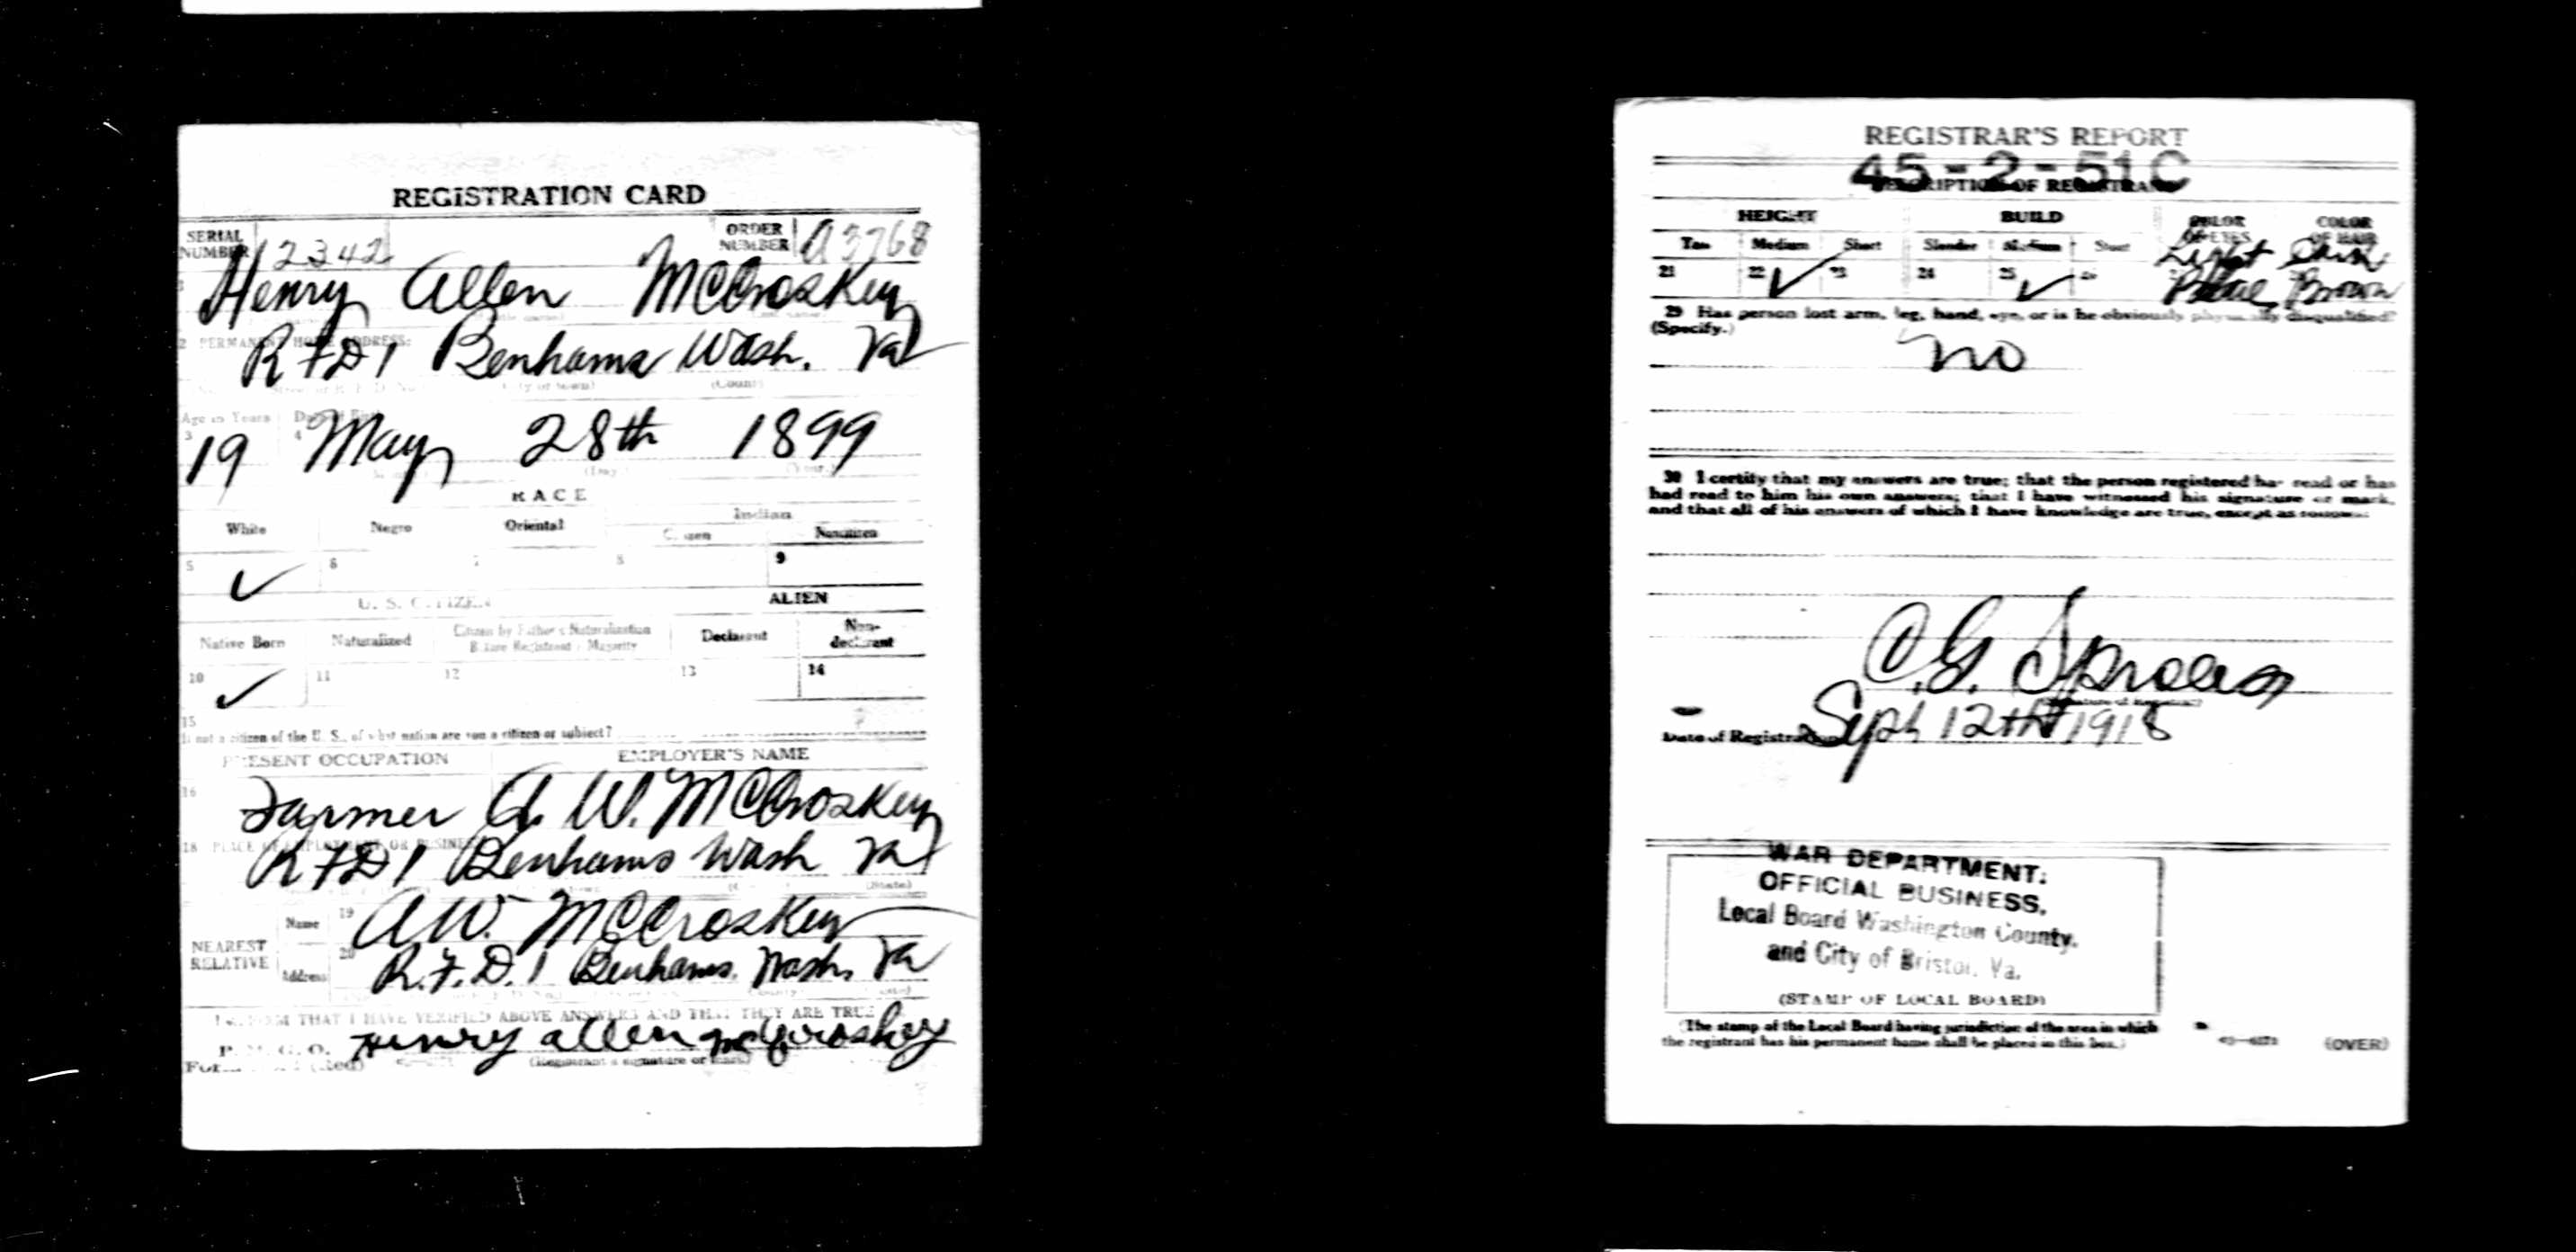 REGISTRATION CARD
SERIAL NUMBER 12342 ORDER NUMBER A3768
1 Henry Allen McCroskey
2 PERMANENT HOME ADDRESS:
R F D 1 Benhams Wash. Va
Age in Years Date of Birth
3 19 4 May 28th 1899
RACE
White Negro Oriental Indian
Citizen Noncitizen
5 ✓ 6 7 8 9
U. S. CITIZEN ALIEN
Native Born Naturalized Citizen by Father's Naturalization Before Registrant's Majority Declarant Non-declarant
10 ✓ 11 12 13 14
15
If not a citizen of the U. S., of what nation are you a citizen or subject?
PRESENT OCCUPATION EMPLOYER'S NAME
16 Farmer A. W. McCroskey
18 PLACE OF EMPLOYMENT OR BUSINESS
R F D 1 Benhams Wash Va
(State)
NEAREST RELATIVE Name 19 A W. McCroskey
Address 20 R. F. D. 1 Benhams, Wash, Va
I AFFIRM THAT I HAVE VERIFIED ABOVE ANSWERS AND THAT THEY ARE TRUE
P. M. G. O.
(Red) Henry allen mcCroskey
(Registrant's signature or mark)
REGISTRAR'S REPORT
45-2-51 C
DESCRIPTION OF REGISTRANT
HEIGHT BUILD COLOR OF EYES COLOR OF HAIR
Tall Medium Short Slender Medium Stout Light Dark
21 22 ✓ 23 24 25 ✓ 26 Blue Brown
29 Has person lost arm, leg, hand, eye, or is he obviously physically disqualified?
(Specify.)
no
30 I certify that my answers are true; that the person registered has read or has
had read to him his own answers; that I have witnessed his signature or mark,
and that all of his answers of which I have knowledge are true, except as follows:
C. G.
(Signature of Registrar)
Date of Registration Sept 12th 1918
WAR DEPARTMENT:
OFFICIAL BUSINESS,
Local Board Washington County,
and City of Bristol, Va.
(STAMP OF LOCAL BOARD)
(The stamp of the Local Board having jurisdiction of the area in which
the registrant has his permanent home shall be placed in this box.)
(OVER)